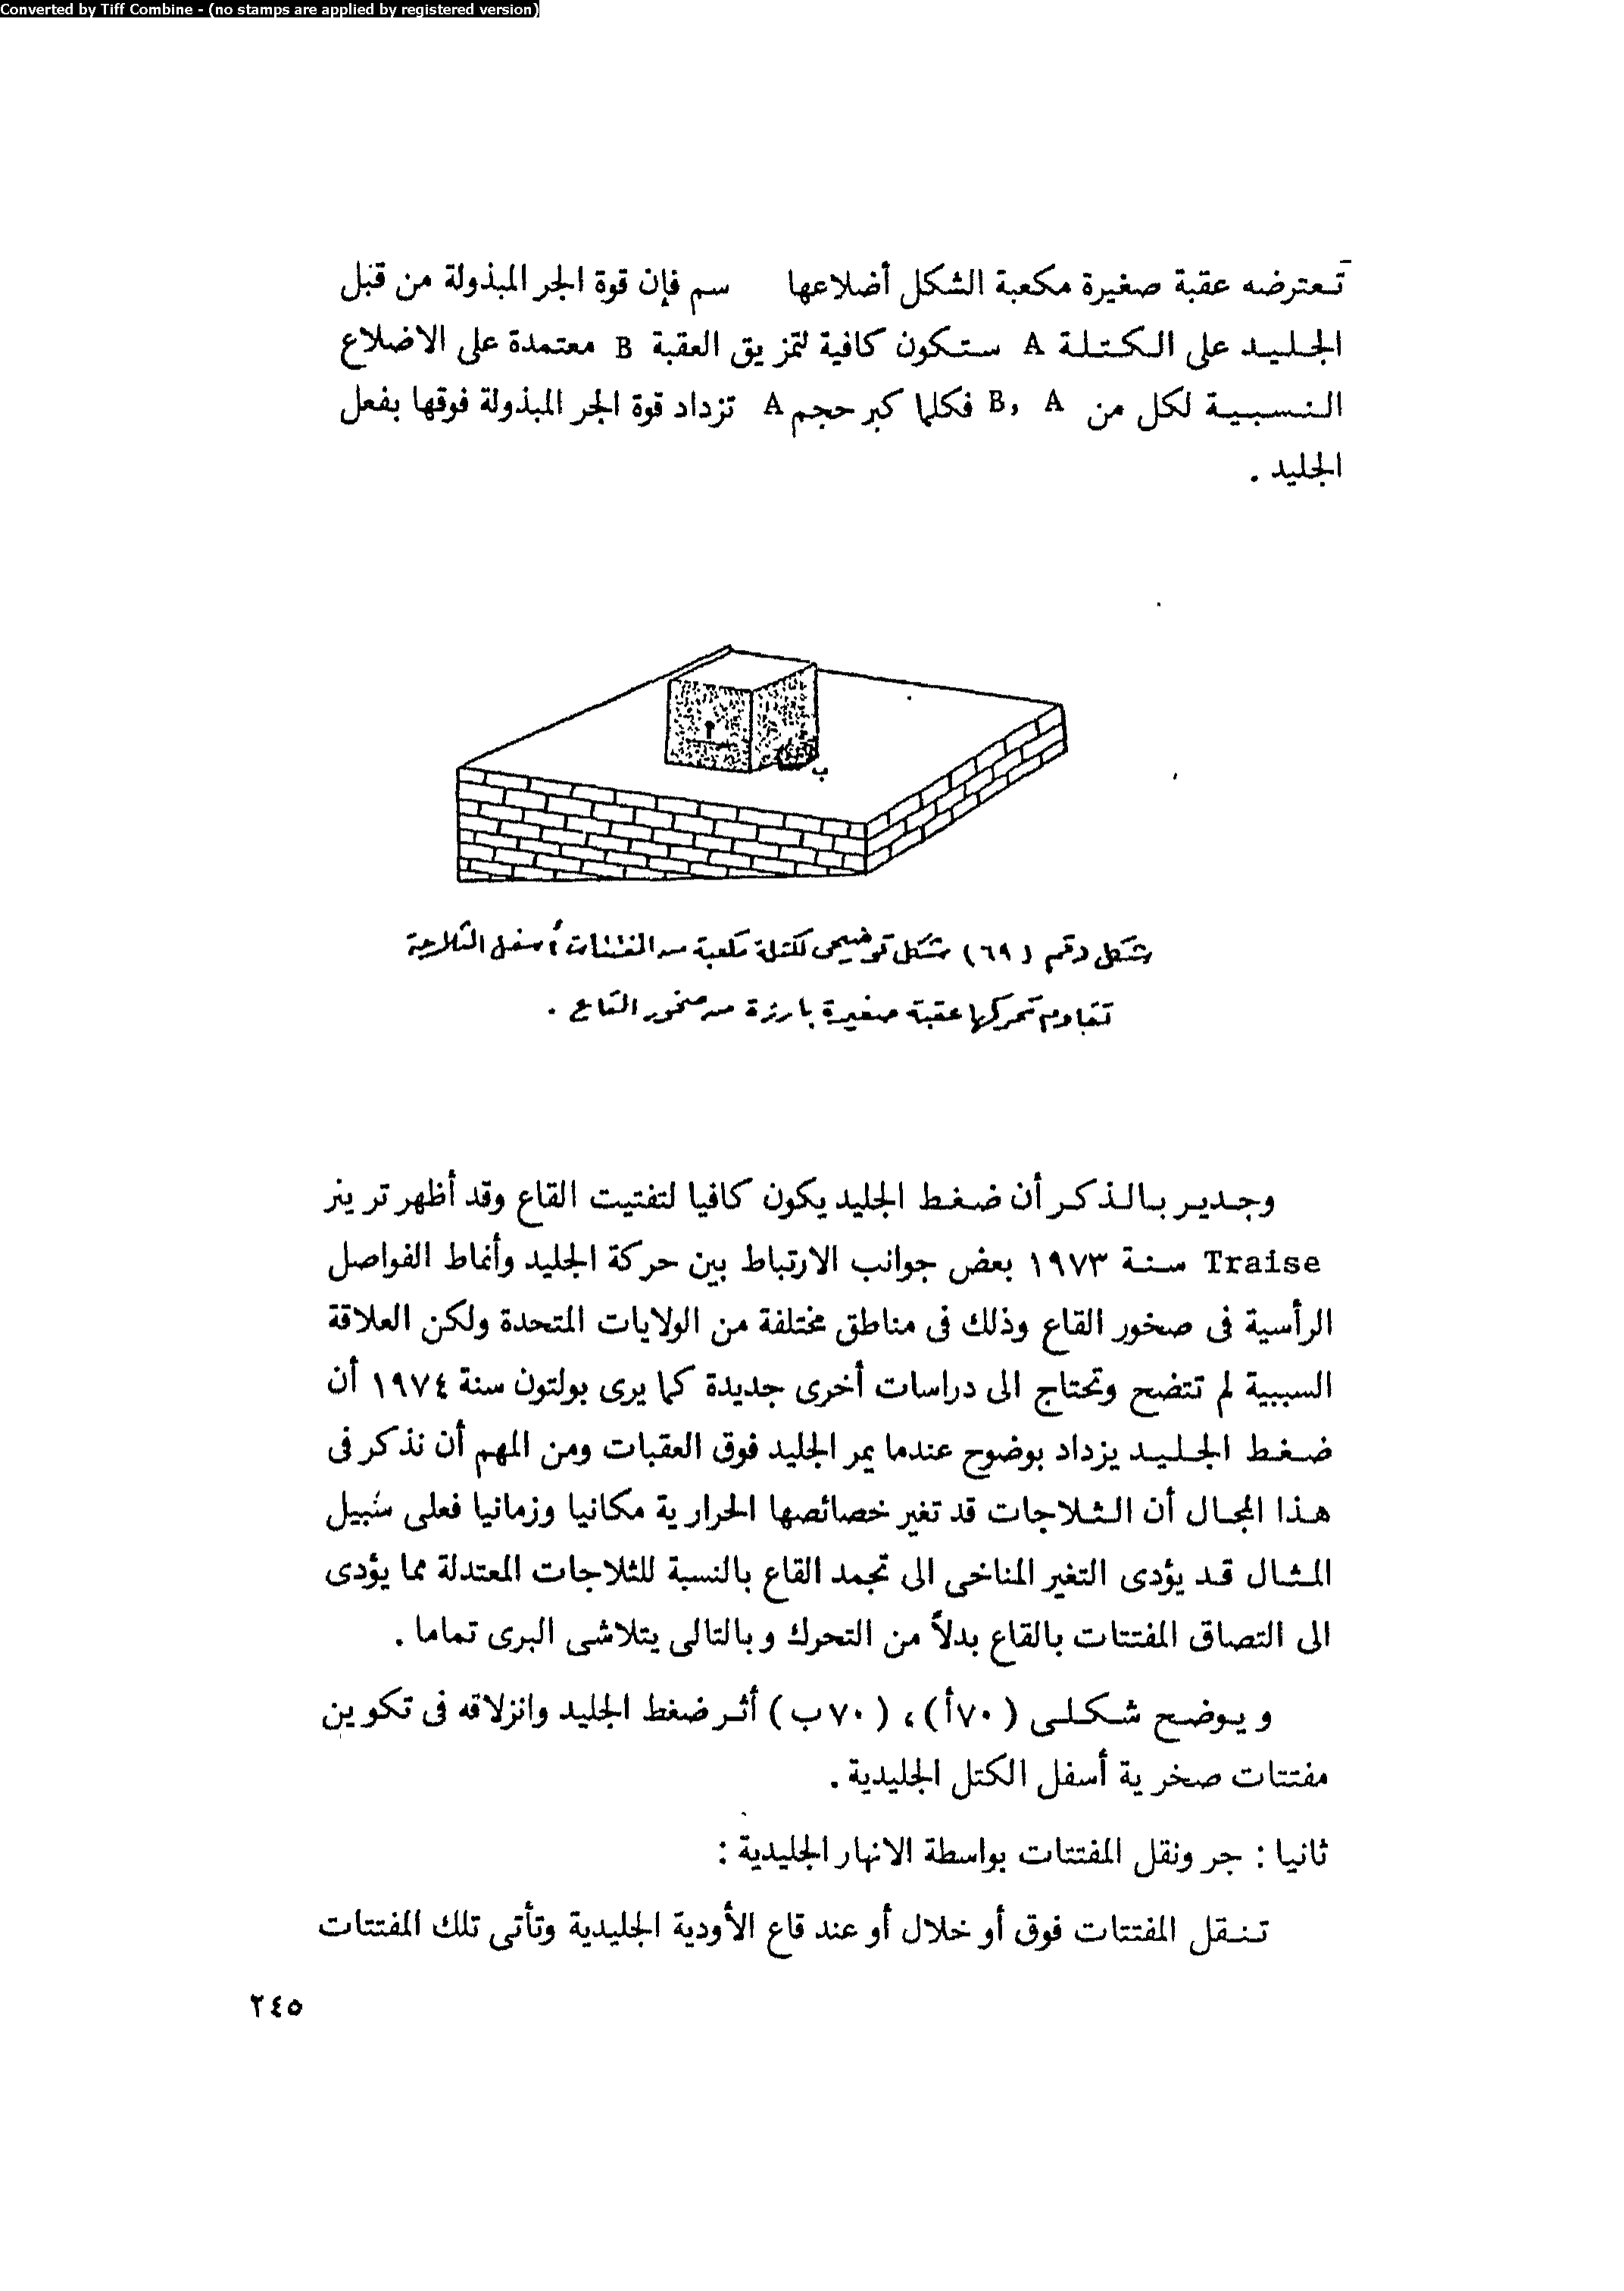 Converted by Tiff Combine - (no stamps are applied by registered version)
تعترضه عقبة صغيرة مكعبة الشكل أضلاعها سم فإن قوة الجر المبذولة من قبل
الجليد على الكتلة A ستكون كافية لتمزيق العقبة B معتمدة على الاضلاع
النسبية لكل من B, A فكلما كبر حجم A تزداد قوة الجر المبذولة فوقها بفعل
الجليد .
أ
ب
شكل رقم (٦٩) شكل توضيحى لكتلة مكعبة من المفتتات أسفل الثلاجة
تقاوم تحركها عقبة صغيرة بارزة من صخور القاع .
وجدير بالذكر أن ضغط الجليد يكون كافيا لتفتيت القاع وقد أظهر ترينر
Traise سنة ١٩٧٣ بعض جوانب الارتباط بين حركة الجليد وأنماط الفواصل
الرأسية فى صخور القاع وذلك فى مناطق مختلفة من الولايات المتحدة ولكن العلاقة
السببية لم تتضح وتحتاج الى دراسات أخرى جديدة كما يرى بولتون سنة ١٩٧٤ أن
ضغط الجليد يزداد بوضوح عندما يمر الجليد فوق العقبات ومن المهم أن نذكر فى
هذا المجال أن الثلاجات قد تغير خصائصها الحرارية مكانيا وزمانيا فعلى سبيل
المثال قد يؤدى التغير المناخى الى تجمد القاع بالنسبة للثلاجات المعتدلة مما يؤدى
الى التصاق المفتتات بالقاع بدلاً من التحرك وبالتالى يتلاشى البرى تماما .
ويوضح شكلى (٧٠أ)، (٧٠ب) أثر ضغط الجليد وانزلاقه فى تكوين
مفتتات صخرية أسفل الكتل الجليدية .
ثانيا : جر ونقل المفتتات بواسطة الانهار الجليدية :
تنقل المفتتات فوق أو خلال أو عند قاع الأودية الجليدية وتأتى تلك المفتتات
٢٤٥